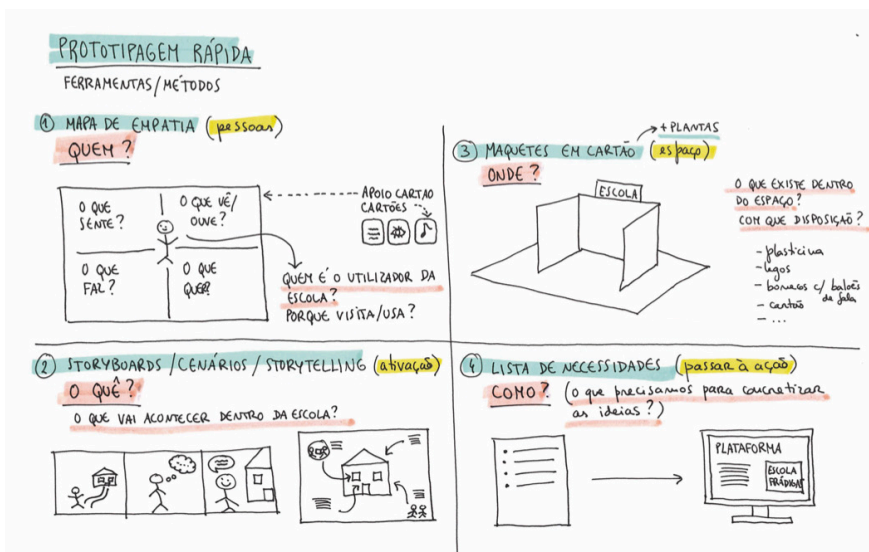 PROTOTIPAGEM RÁPIDA
FERRAMENTAS/MÉTODOS
1 MAPA DE EMPATIA (pessoas)
QUEM?
O QUE
SENTE?
O QUE VÊ/
OUVE?
O QUE
FAZ?
O QUE
QUER?
APOIO CARTAO
CARTÕES
QUEM É O UTILIZADOR DA
ESCOLA?
PORQUE VISITA/USA?
2 STORYBOARDS/CENÁRIOS/STORYTELLING (ativação)
O QUÊ?
O QUE VAI ACONTECER DENTRO DA ESCOLA?
+ PLANTAS
3 MAQUETES EM CARTÃO (espaço)
ONDE?
ESCOLA
O QUE EXISTE DENTRO
DO ESPAÇO?
COM QUE DISPOSIÇÃO?
- plasticina
- legos
- bonecos c/ balões
de fala
- cartão
- ...
4 LISTA DE NECESSIDADES (passar à ação)
COMO? (o que precisamos para concretizar
as ideias?)
PLATAFORMA
ESCOLA